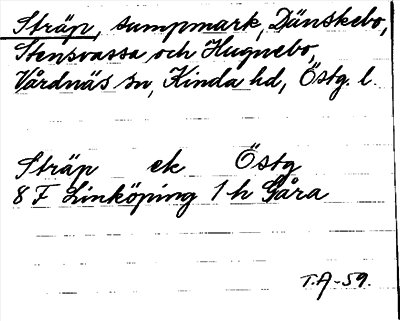 Sträp, sumpmark, Dänskebo,
Stensvassa och Hugnebo,
Vårdnäs sn, Kinda hd, Östg. l.
Sträp ek Östg
8 F Linköping 1 h Gåra
T.A-59.